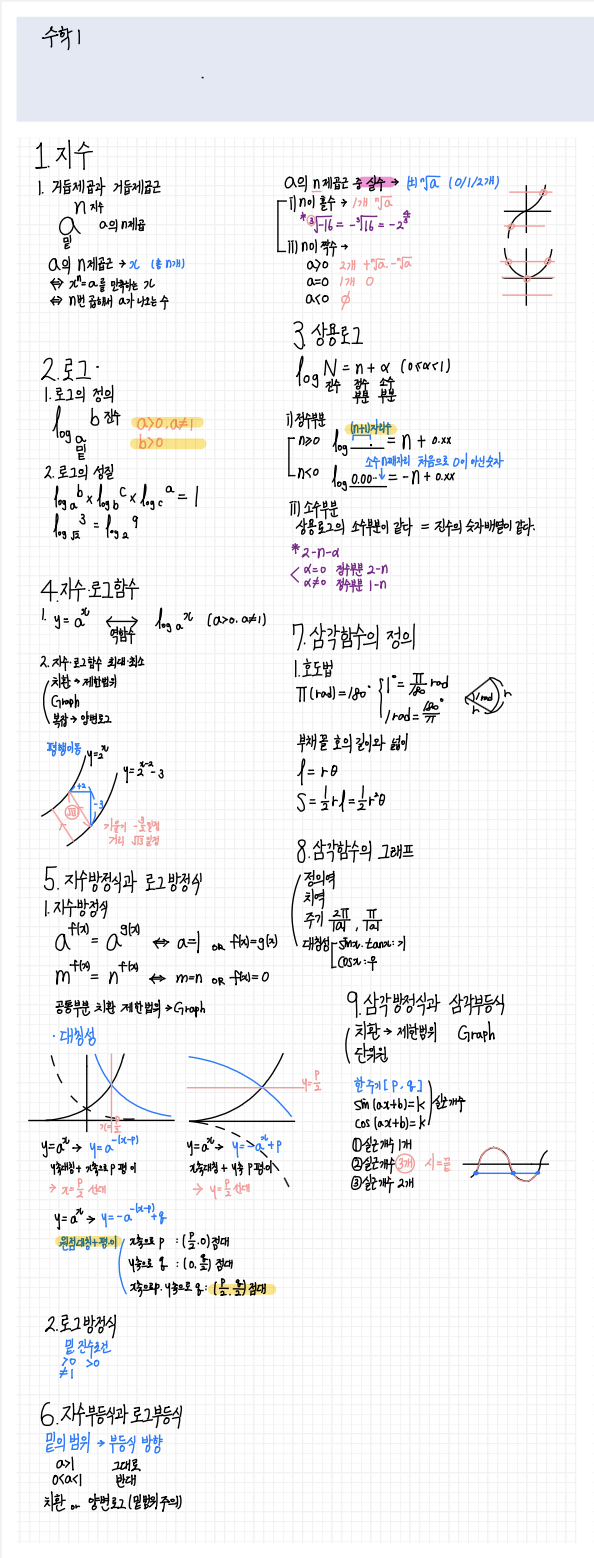 수학 1
1. 지수
1. 거듭제곱과 거듭제곱근
n 지수
a a의 n제곱
밑
a의 n제곱근 → x (총 n개)
⇔ xⁿ=a를 만족하는 x
⇔ n번 곱해서 a가 나오는 수
a의 n제곱근 중 실수 → (±) ⁿ√a (0/1/2개)
i) n이 홀수 → 1개 ⁿ√a
* ³√-16 = -³√16 = -2^(4/3)
ii) n이 짝수 →
a>0 2개 +ⁿ√a, -ⁿ√a
a=0 1개 0
a<0 ∅
2. 로그
1. 로그의 정의
log_a b 진수
밑
a>0, a≠1
b>0
2. 로그의 성질
log_a b × log_b c × log_c a = 1
log_√2 3 = log_2 9
3. 상용로그
log N = n + α (0≤α<1)
진수 정수 소수
부분 부분
i) 정수부분
(n+1)자리수
n≥0 log ___. = n + 0.xx
소수 n째자리 처음으로 0이 아닌 숫자
n<0 log 0.00·· = -n + 0.xx
ii) 소수부분
상용로그의 소수부분이 같다 = 진수의 숫자배열이 같다.
* 2-n-α
α=0 정수부분 2-n
α≠0 정수부분 1-n
4. 지수·로그함수
1. y=aˣ ⟷ log_a x (a>0, a≠1)
역함수
2. 지수·로그함수 최대·최소
치환 → 제한범위
Graph
복잡 → 양변로그
평행이동
y=2ˣ
y=2^(x-2)-3
+2
-3
√13
기울기 -3/2 일정
거리 √13 일정
5. 지수방정식과 로그방정식
1. 지수방정식
a^f(x) = a^g(x) ⇔ a=1 OR f(x)=g(x)
m^f(x) = n^f(x) ⇔ m=n OR f(x)=0
공통부분 치환 제한범위 → Graph
· 대칭성
x=p/2
y=p/2
y=aˣ → y=a^-(x-p)
y축대칭 + x축으로 p 평이
→ x=p/2 선대
y=aˣ → y=-aˣ+p
x축대칭 + y축 p평이
→ y=p/2 선대
y=aˣ → y=-a^-(x-p)+q
원점대칭+평이
x축으로 p : (p/2, 0) 점대
y축으로 q : (0, q/2) 점대
x축으로p, y축으로 q : (p/2, q/2) 점대
2. 로그방정식
밑 진수조건
>0 >0
≠1
6. 지수부등식과 로그부등식
밑의 범위 → 부등식 방향
a>1 그대로
0<a<1 반대
치환 or 양변로그 (밑범위 주의)
7. 삼각함수의 정의
1. 호도법
π(rad)=180° 1°=π/180 rad
1rad=180°/π
1rad
r
r
r
부채꼴 호의 길이와 넓이
l = rθ
S = 1/2 rl = 1/2 r²θ
8. 삼각함수의 그래프
정의역
치역
주기 2π/|a|, π/|a|
대칭성 sinx, tanx : 기
cosx : 우
9. 삼각방정식과 삼각부등식
치환 → 제한범위 Graph
단위원
한주기 [p, q]
sin(ax+b)=k
cos(ax+b)=k
실근개수
① 실근개수 1개
② 실근개수 3개
③ 실근개수 2개